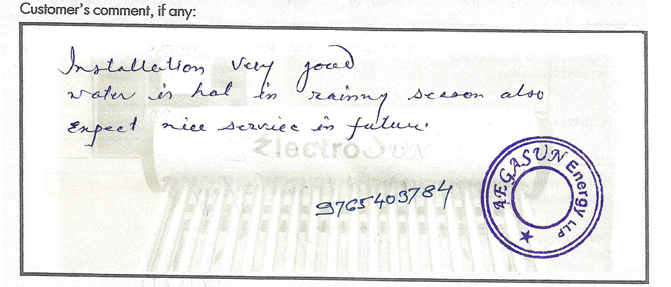 Customer's comment, if any:
Installation very good
water is hot in rainny season also
Expect nice service in future.
ElectroSUN
9765403784
AEGASUN Energy LLP